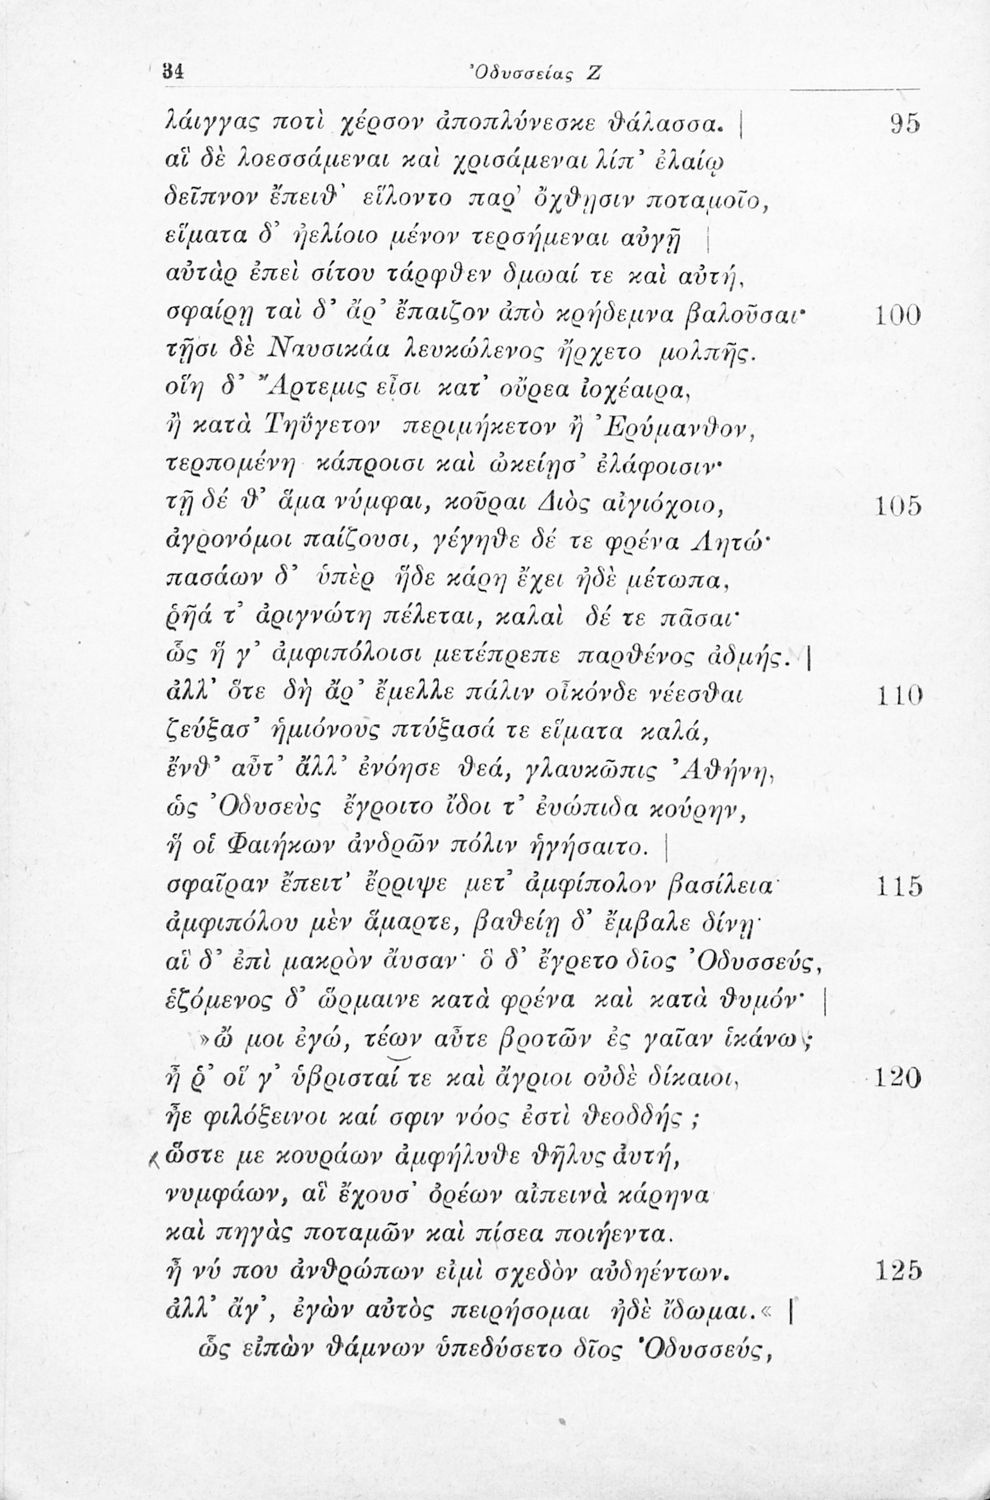 34 Ὀδυσσείας Ζ
λάιγγας ποτὶ χέρσον ἀποπλύνεσκε θάλασσα. | 95
αἳ δὲ λοεσσάμεναι καὶ χρισάμεναι λίπ’ ἐλαίῳ
δεῖπνον ἔπειθ’ εἵλοντο παρ’ ὄχθῃσιν ποταμοῖο,
εἵματα δ’ ἠελίοιο μένον τερσήμεναι αὐγῇ |
αὐτὰρ ἐπεὶ σίτου τάρφθεν δμωαί τε καὶ αὐτή,
σφαίρῃ ταὶ δ’ ἄρ’ ἔπαιζον ἀπὸ κρήδεμνα βαλοῦσαι· 100
τῇσι δὲ Ναυσικάα λευκώλενος ἤρχετο μολπῆς.
οἵη δ’ Ἄρτεμις εἶσι κατ’ οὔρεα ἰοχέαιρα,
ἢ κατὰ Τηΰγετον περιμήκετον ἢ Ἐρύμανθον,
τερπομένη κάπροισι καὶ ὠκείῃσ’ ἐλάφοισιν·
τῇ δέ θ’ ἅμα νύμφαι, κοῦραι Διὸς αἰγιόχοιο, 105
ἀγρονόμοι παίζουσι, γέγηθε δέ τε φρένα Λητώ·
πασάων δ’ ὑπὲρ ἥδε κάρη ἔχει ἠδὲ μέτωπα,
ῥῆά τ’ ἀριγνώτη πέλεται, καλαὶ δέ τε πᾶσαι·
ὣς ἥ γ’ ἀμφιπόλοισι μετέπρεπε παρθένος ἀδμής. |
ἀλλ’ ὅτε δὴ ἄρ’ ἔμελλε πάλιν οἶκόνδε νέεσθαι 110
ζεύξασ’ ἡμιόνους πτύξασά τε εἵματα καλά,
ἔνθ’ αὖτ’ ἄλλ’ ἐνόησε θεά, γλαυκῶπις Ἀθήνη,
ὡς Ὀδυσεὺς ἔγροιτο ἴδοι τ’ ἐυώπιδα κούρην,
ἥ οἱ Φαιήκων ἀνδρῶν πόλιν ἡγήσαιτο. |
σφαῖραν ἔπειτ’ ἔρριψε μετ’ ἀμφίπολον βασίλεια· 115
ἀμφιπόλου μὲν ἅμαρτε, βαθείῃ δ’ ἔμβαλε δίνῃ·
αἳ δ’ ἐπὶ μακρὸν ἄυσαν· ὃ δ’ ἔγρετο δῖος Ὀδυσσεύς,
ἑζόμενος δ’ ὥρμαινε κατὰ φρένα καὶ κατὰ θυμόν· |
»ὤ μοι ἐγώ, τέων αὖτε βροτῶν ἐς γαῖαν ἱκάνω;
ἦ ῥ’ οἵ γ’ ὑβρισταί τε καὶ ἄγριοι οὐδὲ δίκαιοι, 120
ἦε φιλόξεινοι καί σφιν νόος ἐστὶ θεουδής;
ὥστε με κουράων ἀμφήλυθε θῆλυς ἀυτή,
νυμφάων, αἳ ἔχουσ’ ὀρέων αἰπεινὰ κάρηνα
καὶ πηγὰς ποταμῶν καὶ πίσεα ποιήεντα.
ἦ νύ που ἀνθρώπων εἰμὶ σχεδὸν αὐδηέντων. 125
ἀλλ’ ἄγ’, ἐγὼν αὐτὸς πειρήσομαι ἠδὲ ἴδωμαι.« |
ὣς εἰπὼν θάμνων ὑπεδύσετο δῖος Ὀδυσσεύς,